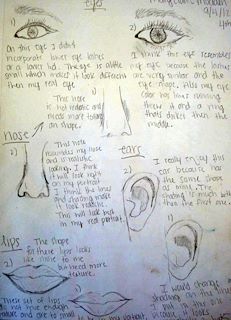 eyes
9/21/16
4th
1)
2)
On this eye I didn't
incorporate lower eye lashes
or a lower lid. The eye is alittle
small which makes it look different
then my real eye.
I think this eye resembles
my eye because the lashes
are very similar and the
eye shape. Also my eye
color has lines running
threw it and a ring
thats darker then the
middle.
1)
This nose
is not realistic and
needs more toning
an shape.
nose
2)
This nose
resembles my nose
and is realistic
looking. I think
it will look right
on my portrait.
I think the lines
and shading make
it look realistic.
This will look best
in my real portrait.
ears
2)
I really enjoy this
ear because has
the same shape
as mine. The
shading is much better
then the first one.
lips
The shape
for these lips looks
like mine to me
but need more
texture.
1)
2)
These set of lips
not true enough
and are to small
I would change
shading on the